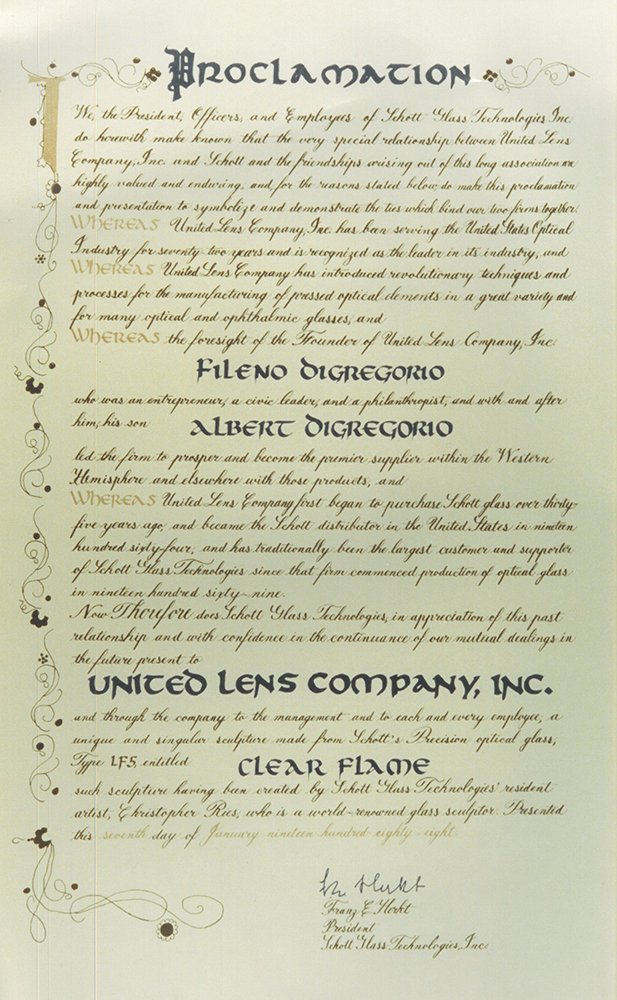 PROCLAMATION
We, the President, Officers, and Employees of Schott Glass Technologies Inc.
do herewith make known that the very special relationship between United Lens
Company, Inc. and Schott and the friendships arising out of this long association are
highly valued and enduring, and, for the reasons stated below, do make this proclamation
and presentation to symbolize and demonstrate the ties which bind our two firms together.
WHEREAS United Lens Company, Inc. has been serving the United States Optical
Industry for seventy-two years and is recognized as the leader in its industry, and
WHEREAS United Lens Company has introduced revolutionary techniques and
processes for the manufacturing of pressed optical elements in a great variety and
for many optical and ophthalmic glasses, and
WHEREAS the foresight of the Founder of United Lens Company, Inc.
FILENO DIGREGORIO
who was an entrepreneur, a civic leader, and a philanthropist, and with and after
him, his son ALBERT DIGREGORIO
led the firm to prosper and become the premier supplier within the Western
Hemisphere and elsewhere with those products, and
WHEREAS United Lens Company first began to purchase Schott glass over thirty-
five years ago, and became the Schott distributor in the United States in nineteen
hundred sixty-four, and has traditionally been the largest customer and supporter
of Schott Glass Technologies since that firm commenced production of optical glass
in nineteen hundred sixty-nine.
Now Therefore does Schott Glass Technologies, in appreciation of this past
relationship and with confidence in the continuance of our mutual dealings in
the future present to
UNITED LENS COMPANY, INC.
and through the company to the management and to each and every employee, a
unique and singular sculpture made from Schott's Precision optical glass,
Type LF5, entitled CLEAR FLAME
such sculpture having been created by Schott Glass Technologies' resident
artist, Christopher Ries, who is a world-renowned glass sculptor. Presented
this seventh day of January nineteen hundred eighty-eight.
Franz E. Herkt
President
Schott Glass Technologies, Inc.